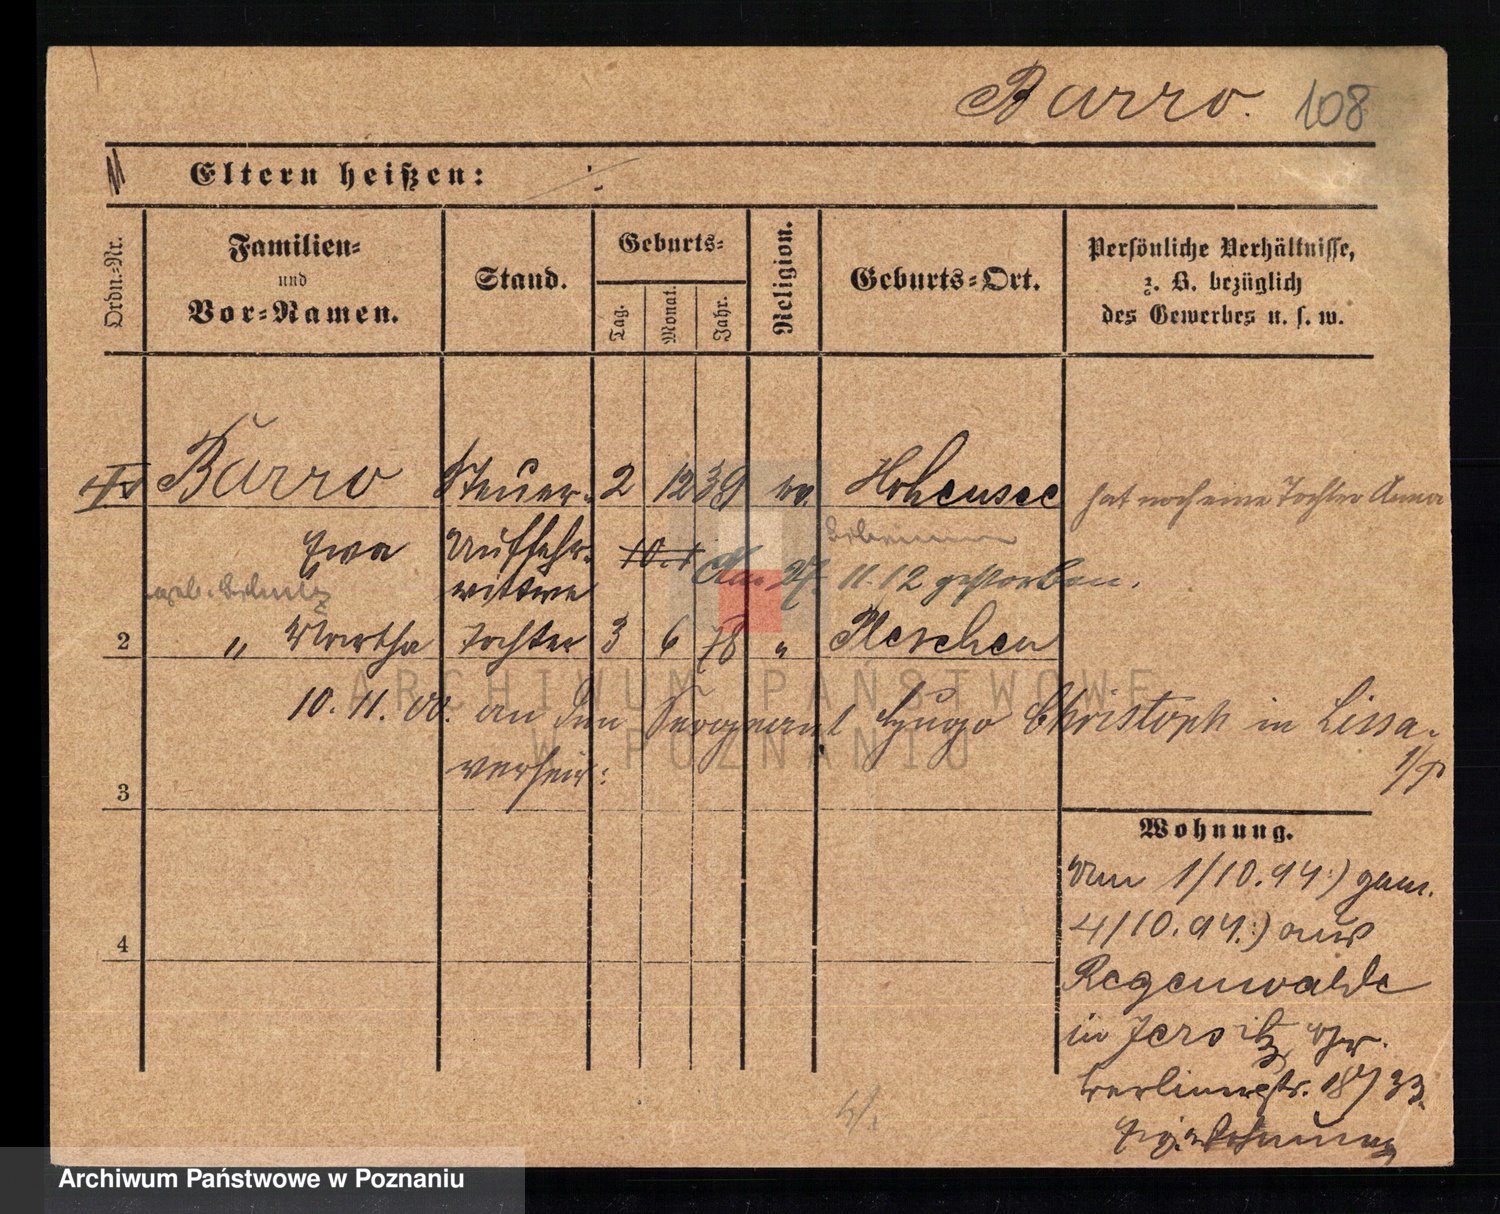 Barro. 108
Eltern heißen: ./.
Ordn.-Nr.
Familien-
und
Vor-Namen.
Stand.
Geburts-
Tag.
Monat.
Jahr.
Religion.
Geburts-Ort.
Persönliche Verhältnisse,
z. B. bezüglich
des Gewerbes u. s. w.
Barro Steuer- 2 12 39 ev. Hohensee hat noch eine Tochter Anna
Ewa Aufseher- 10.1
wittwe am 27. 11. 12 gestorben.
geb.
2 " Martha Tochter 3 6 78 " Pleschen
10. 11. 00. an den Sergeant Hugo Christoph in Lissa
verheir:
3
Wohnung.
Am 1/10. 94:) gem.
4/10. 94:) aus
Regenwalde
in Jersitz,
berlinerstr. 33.
Wohnung
4
ARCHIWUM PAŃSTWOWE
W POZNANIU
Archiwum Państwowe w Poznaniu